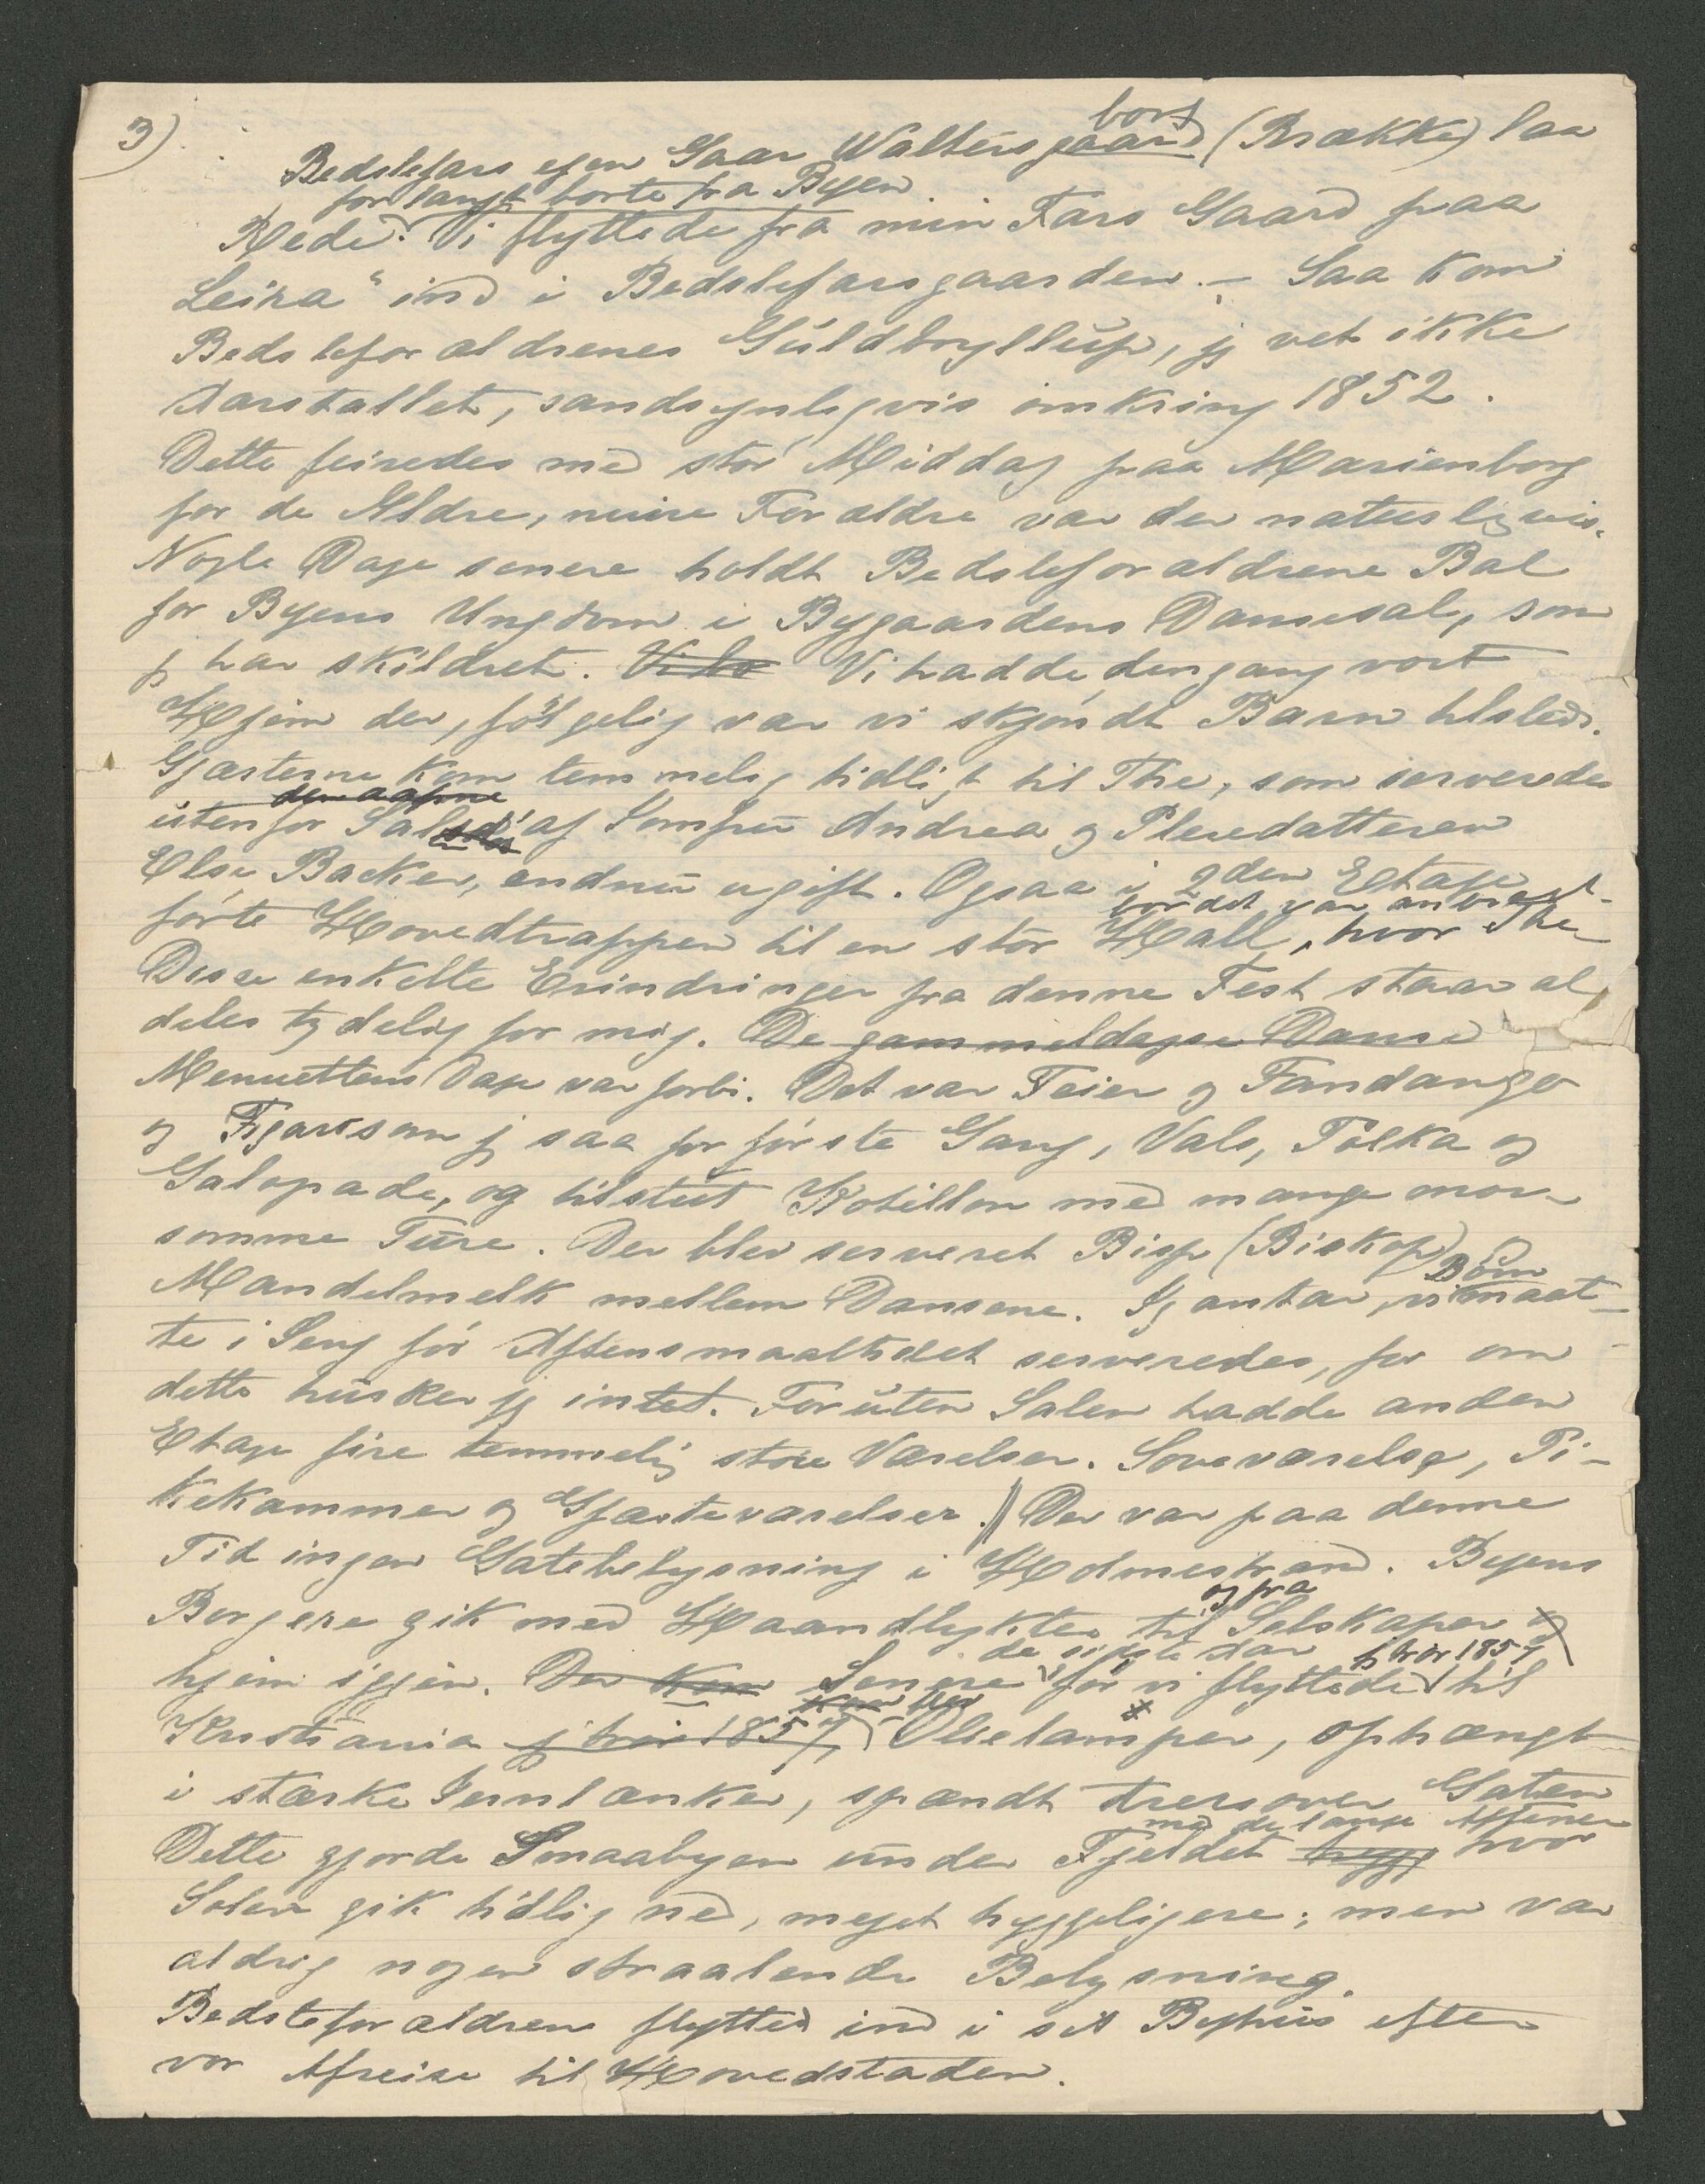 3)
bors
Bedstefars egen Gaar Waltersgaard (Brække) laa
for langt borte fra Byen
Rede. Vi flyttede fra min Fars Gaard paa
Leira" ind i Bedstefarsgaarden. – Saa kom
Bedsteforældrenes Guldbryllup, jg vet ikke
Aarstallet, sandsynligvis omkring 1852.
Dette feiredes med stor Middag paa Marienborg
for de Ældre, mine Forældre var der naturligvis.
Nogle Dage senere holdt Bedsteforældrene Bal
for Byens Ungdom i Bygaardens Dansesal, som
jg har skildret. Vi bo Vi hadde dengang vort
Hjem der, følgelig var vi skjøndt Barn tilsteds.
Gjæsterne kom temmelig tidligt til The, som serveredes
den aapne
utenfor Sal af Jomfru Andrea og Pleiedatteren
Else Backer, endnu ugift. Ogsaa i 2den Etage
hvor det var anbragt
førte Hovedtrappen til en stor Hall, hvor The
Disse enkelte Erindringer fra denne Fest staar al
deles tydelig for mig. De gammeldagse Danse
Menuettens Dage var forbi. Det var Feier og Fandango
og Figaro som jg saa for første Gang, Vals, Polka og
Galopade, og tilslut Kotillon med mange mor-
somme Ture. Der blev serveret Bisp (Biskop)
Børn
Mandelmelk mellem Dansene. Jg antar, vi maat-
te i Seng før Aftensmaaltidet serveredes, for om
dette husker jg intet. Foruten Salen hadde anden
Etage fire temmelig store Værelser. Soveværelse, Pi-
kekammer og Gjæsteværelser. || Der var paa denne
Tid ingen Gatebelysning i Holmestrand. Byens
og fra
Borgere gik med Haandlykter til Selskaper og
de sidste Aar jg tror 1857
hjem igjen. Der kom Senere før vi flyttede til
kom der
Kristiania jg tror 1857 Olielamper, ophængt
i stærke Jernlænker, spændt tversover Gaten
med de lange Aftener
Dette gjorde Smaabyen under Fjeldet hygg hvor
Solen gik tidlig ned, meget hyggeligere; men var
aldrig nogen straalende Belysning.
Bedsteforældrene flytted ind i sit Byhus efter
vor Afreise til Hovedstaden.